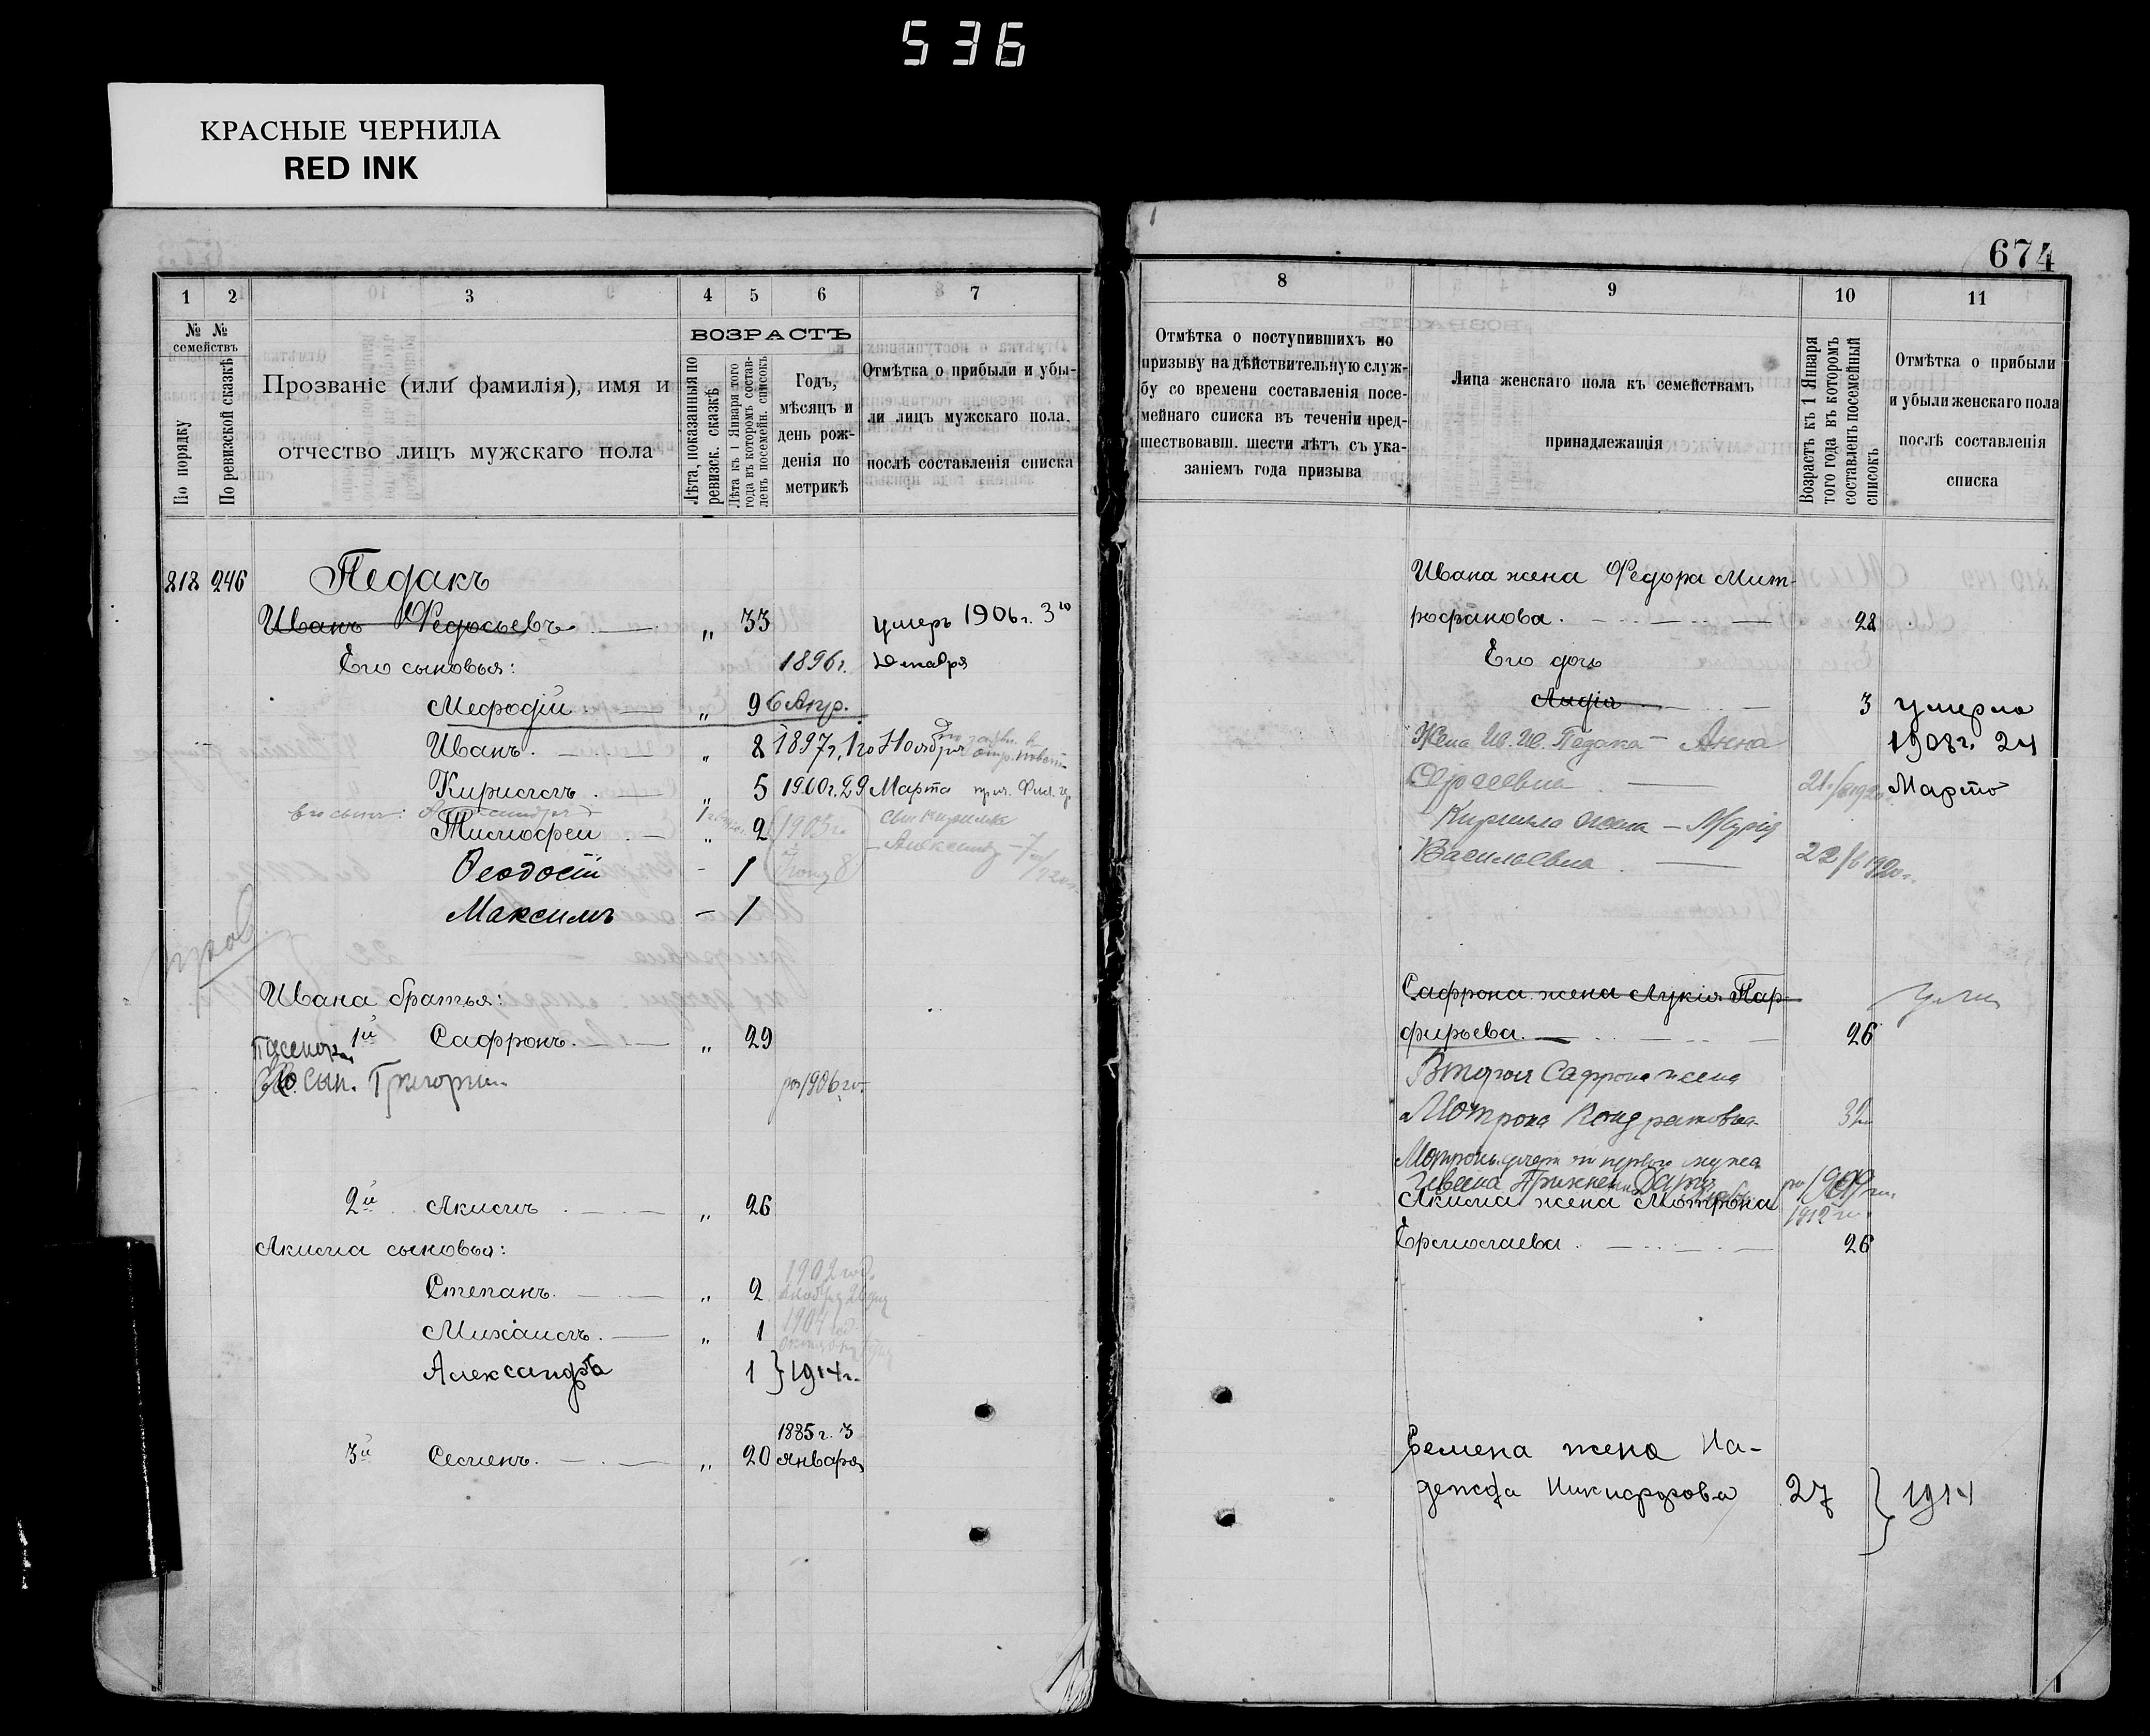 536
КРАСНЫЕ ЧЕРНИЛА
RED INK
674
1 2 3 4 5 6 7
№ №
семействъ
По порядку
По ревизской сказкѣ
Прозваніе (или фамилія), имя и
отчество лицъ мужскаго пола
ВОЗРАСТЪ
Лѣта, показанныя по
ревизск. сказкѣ
Лѣта къ 1 Января того
года въ которомъ состав-
ленъ посемейн. списокъ
Годъ,
мѣсяцъ и
день рож-
денія по
метрикѣ
Отмѣтка о прибыли и убы-
ли лицъ мужскаго пола
послѣ составленія списка
818 246 Педакъ
Иванъ Федосьевъ „ 33 умеръ 1906 г. 3го
Его сыновья: 1896 г. Октября
Мефодій „ 9 6 Апр.
Иванъ „ 8 1897 г. 1го Ноября
Кириллъ „ 5 1900 г. 29 Марта
его сынъ: Александръ
Тимофей „ 2 1903 г.
Феодосій - 1
Максимъ - 1
Ивана братья:
1й Сафронъ „ 29
Его сын. Григорій 1906 го
2й Акимъ „ 26
Акима сыновья:
Степанъ „ 2 1902 год.
Михаилъ „ 1 1904 год.
Александръ 1 } 1914 г.
1885 г. 3
3й Семенъ „ 20 января
8 9 10 11
Отмѣтка о поступившихъ по
призыву на дѣйствительную служ-
бу со времени составленія посе-
мейнаго списка въ теченіи пред-
шествовавш. шести лѣтъ съ ука-
заніемъ года призыва
Лица женскаго пола къ семействамъ
принадлежащія
Возрастъ къ 1 Января
того года въ которомъ
составленъ посемейный
списокъ
Отмѣтка о прибыли
и убыли женскаго пола
послѣ составленія
списка
Ивана жена Федора Мит-
рофанова 28
Его дочь
Лидія 3 умерла
Жена Ив. Ив. Педака - Анна 1908 г. 24
Сергеевна Марта
Кирилла жена - Марія
Васильевна 22/6 1920 г.
Сафрона жена Лукія Пар-
фирьева 26
Вторая Сафрона жена
Мотрона Кондратовна
Акима жена Мотрона
Ермолаева 26
Семена жена На-
дежда Никифорова 27 } 1914